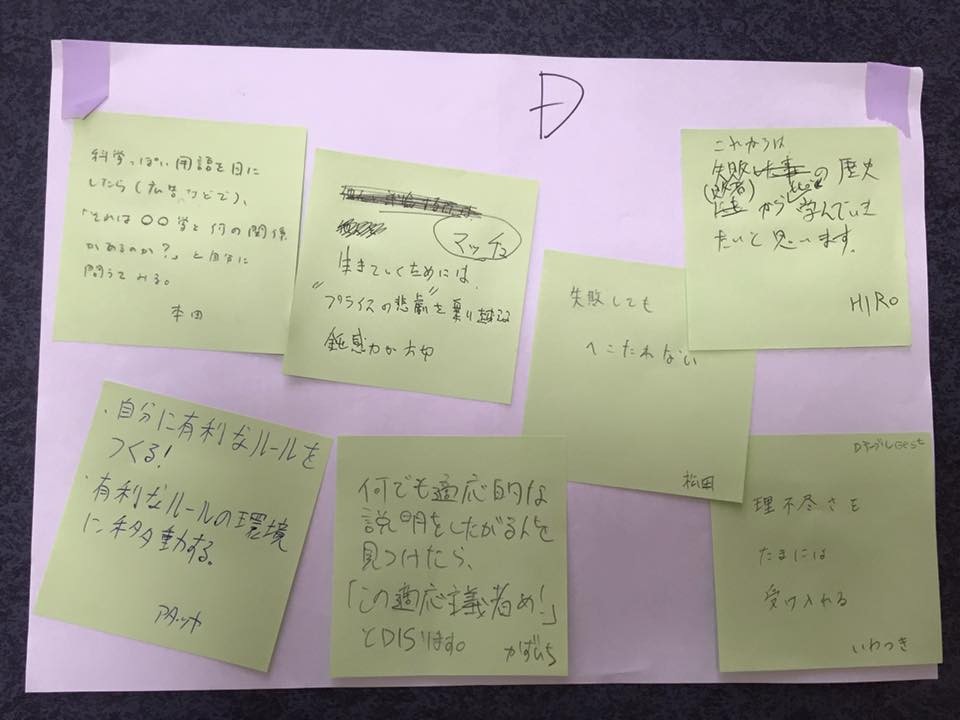 D
科学っぽい用語を目に
したら(広告などで)、
「それは〇〇学と何の関係
があるのか?」と自分に
問うてみる。
本田
マッチョ
生きていくためには、
"プライスの悲劇"を乗り越える
鈍感力が大切
これからは
失敗した事の歴史
(敗者)
から学んでいき
たいと思います。
HIRO
失敗しても
へこたれない
松田
・自分に有利なルールを
つくる!
・有利なルールの環境
に移動する。
アタッカ
何でも適応的な
説明をしたがる人を
見つけたら、
「この適応主義者め!」
とDISります。
かずひろ
DテーブルBest
理不尽さを
たまには
受け入れる
いわつき